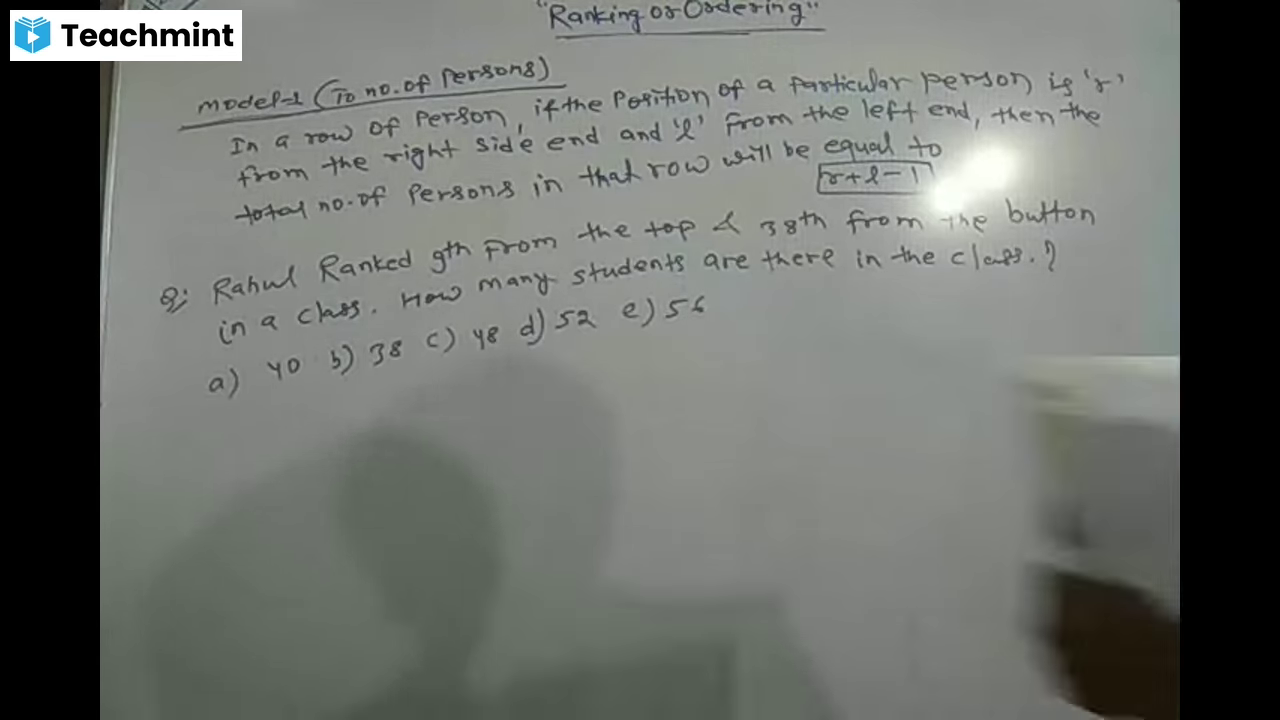 Teachmint
"Ranking or Ordering"
model-1 (To no. of Persons)
In a row of Person, if the Position of a Particular person is 'r'
from the right side end and 'l' from the left end, then the
total no. of Persons in that row will be equal to
r+l-1
Q: Rahul Ranked 9th from the top & 38th from the button
in a class. How many students are there in the class.?
a) 40 b) 38 c) 48 d) 52 e) 56